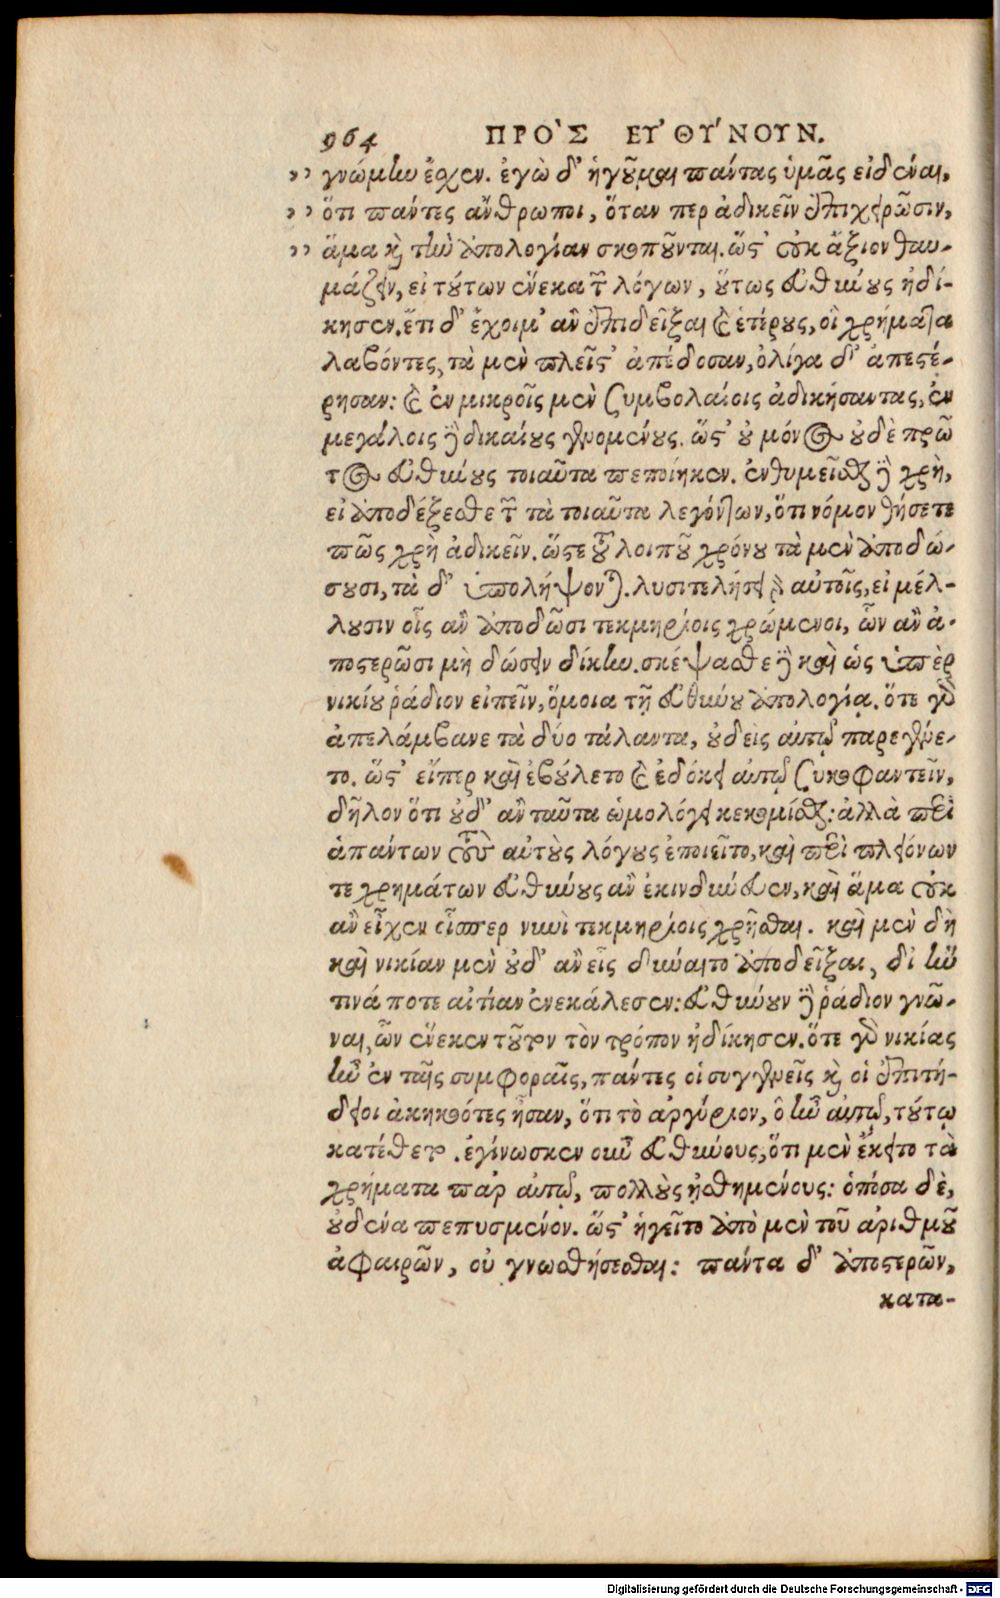 964 ΠΡΟ'Σ ΕΥ'ΘΥ'ΝΟΥΝ.
,, γνώμην ἔχεν. ἐγὼ δ' ἡγοῦμαι πάντας ὑμᾶς εἰδέναι,
,, ὅτι πάντες ἄνθρωποι, ὅταν περ ἀδικεῖν ἐπιχειρῶσιν,
,, ἅμα καὶ τὴν ἀπολογίαν σκοποῦνται. ὥστ' οὐκ ἄξιον θαυ-
μάζειν, εἰ τούτων ἕνεκα τῶν λόγων, οὕτως Εὐθύνους ἠδί-
κησεν. ἔτι δ' ἔχοιμ' ἂν ἐπιδεῖξαι καὶ ἑτέρους, οἳ χρήματα
λαβόντες, τὰ μὲν πλεῖστ' ἀπέδοσαν, ὀλίγα δ' ἀπεστέ-
ρησαν: καὶ ἐν μικροῖς μὲν συμβολαίοις ἀδικήσαντας, ἐν
μεγάλοις δὲ δικαίους γενομένους. ὥστ' οὐ μόνος οὐδὲ πρῶ
τος Εὐθύνους τοιαῦτα πεποίηκεν. ἐνθυμεῖσθαι δὲ χρὴ,
εἰ ἀποδέξεσθε τῶν τὰ τοιαῦτα λεγόντων, ὅτι νόμον θήσετε
πῶς χρὴ ἀδικεῖν. ὥστε τοῦ λοιποῦ χρόνου τὰ μὲν ἀποδώ-
σουσι, τὰ δ' ὑπολήψονται. λυσιτελήσει γὰρ αὐτοῖς, εἰ μέλ-
λουσιν οἷς ἂν ἀποδῶσι τεκμηρίοις χρώμενοι, ὧν ἂν ἀ-
ποστερῶσι μὴ δώσειν δίκην. σκέψασθε δὲ καὶ ὡς ὑπὲρ
νικίου ῥάδιον εἰπεῖν, ὅμοια τῇ Εὐθύνου ἀπολογίᾳ. ὅτε γὰρ
ἀπελάμβανε τὰ δύο τάλαντα, οὐδεὶς αὐτῷ παρεγένε-
το. ὥστ' εἴπερ καὶ ἐβούλετο καὶ ἐδόκει αὐτῷ συκοφαντεῖν,
δῆλον ὅτι οὐδ' ἂν ταῦτα ὡμολόγει κεκομίσθαι: ἀλλὰ περὶ
ἁπάντων τοὺς αὐτοὺς λόγους ἐποιεῖτο, καὶ περὶ πλειόνων
τε χρημάτων Εὐθύνους ἂν ἐκινδύνευεν, καὶ ἅμα οὐκ
ἂν εἶχεν οἷσπερ νυνὶ τεκμηρίοις χρῆσθαι. καὶ μὲν δὴ
καὶ νικίαν μὲν οὐδ' ἂν εἷς δύναιτο ἀποδεῖξαι, δι ἣν
τινά ποτε αἰτίαν ἐνεκάλεσεν: Εὐθύνουν δὲ ῥάδιον γνῶ-
ναι, ὧν ἕνεκεν τοῦτον τὸν τρόπον ἠδίκησεν. ὅτε γὰρ νικίας
ἦν ἐν ταῖς συμφοραῖς, πάντες οἱ συγγενεῖς καὶ οἱ ἐπιτή-
δειοι ἀκηκοότες ἦσαν, ὅτι τὸ ἀργύριον, ὃ ἦν αὐτῷ, τούτῳ
κατέθετο. ἐγίνωσκεν οὖν Εὐθύνους, ὅτι μὲν ἔκειτο τὰ
χρήματα παρ αὐτῷ, πολλοὺς ᾐσθημένους: ὁπόσα δὲ,
οὐδένα πεπυσμένον. ὥστ' ἡγεῖτο ἀπὸ μὲν τοῦ ἀριθμοῦ
ἀφαιρῶν, οὐ γνωσθήσεσθαι: πάντα δ' ἀποστερῶν,
κατα-
Digitalisierung gefördert durch die Deutsche Forschungsgemeinschaft - DFG